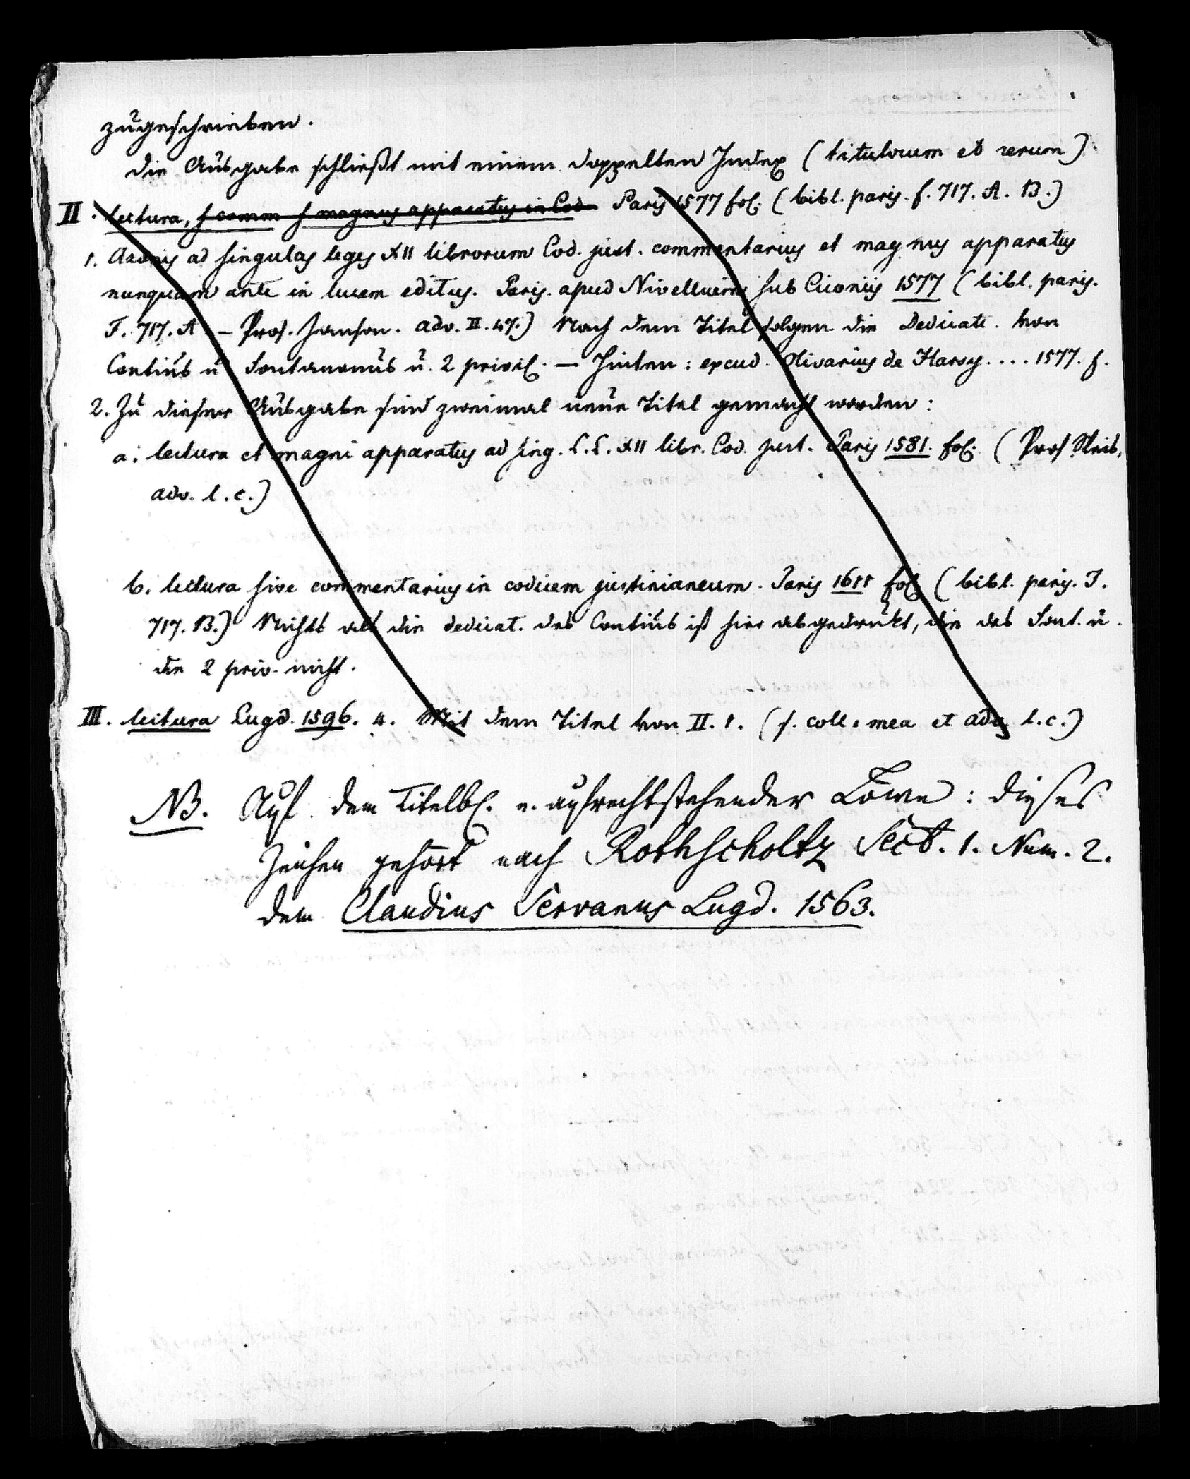 zugeschrieben.
Die Ausgabe schließt mit einem doppelten Index (titulorum et rerum)
II. lectura, s comm s magnus apparatus in Cod Paris 1577 fol. (bibl. paris. f. 717. A. B.)
1. Azonis ad singulas leges XII librorum Cod. just. commentarius et magnus apparatus
nunquam ante in lucem editus. Paris. apud Nivellium sub Ciconiis 1577 (bibl. paris.
F. 717. A – Prof. adv. II. 47.) Nach dem Titel folgen die Dedicat. von
Contius u Fontanonus u. 2 privil. — Hinten: excud. Olivarius de Harsy .... 1577. f.
2. Zu dieser Ausgabe sind zweimal neue Titel gemacht worden:
a. lectura et magni apparatus ad sing. L.L. XII libr. Cod. just. Paris 1581. fol. (Prof
adv. l. c.)
b. lectura sive commentarius in codicem justinianeum. Paris 1611 fol. (bibl. paris. F.
717. B.) Nichts als die dedicat. des Contius ist hier abgedrukt, die des Font. u.
die 2 priv. nicht.
III. lectura Lugd. 1596. 4. Mit dem Titel von II. 1. (s. coll. mea et adv. l. c.)
NB. Auf dem Titelbl. e. aufrechtstehender Löwe: dieses
Zeichen gehört nach Rothscholtz Sect. 1. Num. 2.
dem Claudius Servanus Lugd. 1563.